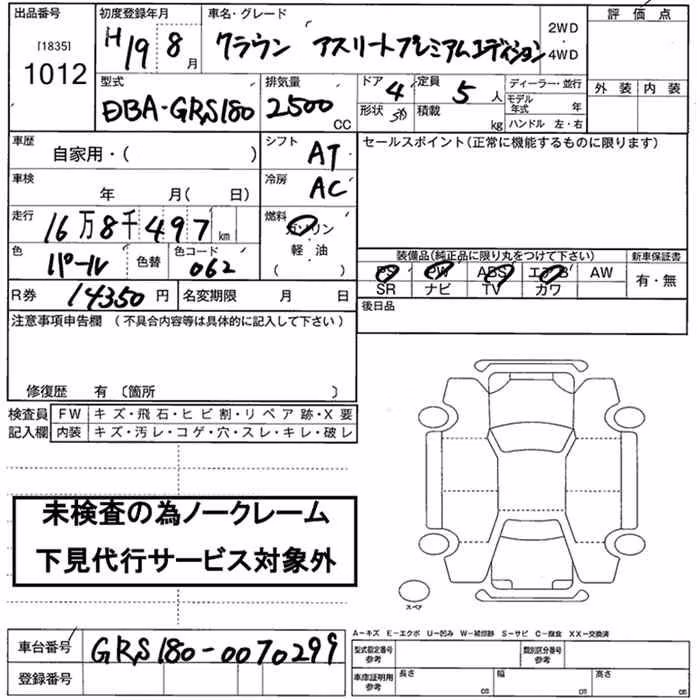 出品番号 初度登録年月 車名・グレード 評価点
[1835]
1012
H19 8月
クラウン アスリートプレミアムエディション
2WD
・
4WD
外装 内装
型式 排気量 ドア 4 定員 5人 ディーラー・並行
DBA-GRS180 2500CC
形状 積載 kg モデル年式 年
ハンドル 左・右
車歴 自家用・( )
シフト AT
セールスポイント(正常に機能するものに限ります)
車検 年 月( 日)
冷房 AC
走行 16万8千497km
燃料 ガソリン
軽・油
( )
色 パール 色替 色コード 062
装備品(純正品に限り丸をつけて下さい) 新車保証書
PS PW ABS エアB AW 有・無
SR ナビ TV カワ
R券 14350円 名変期限 月 日
後日品
注意事項申告欄 (不具合内容等は具体的に記入して下さい)
修復歴 有 〔箇所 〕
検査員 FW キズ・飛石・ヒビ割・リペア跡・X要
記入欄 内装 キズ・汚レ・コゲ・穴・スレ・キレ・破レ
未検査の為ノークレーム
下見代行サービス対象外
スペア
A-キズ E-エクボ U-凹み W-補修跡 S-サビ C-腐食 XX-交換済
車台番号 GRS180-0070299
登録番号
型式指定番号 参考 類別区分番号 参考
車庫証明用 参考 長さ cm 幅 cm 高さ cm